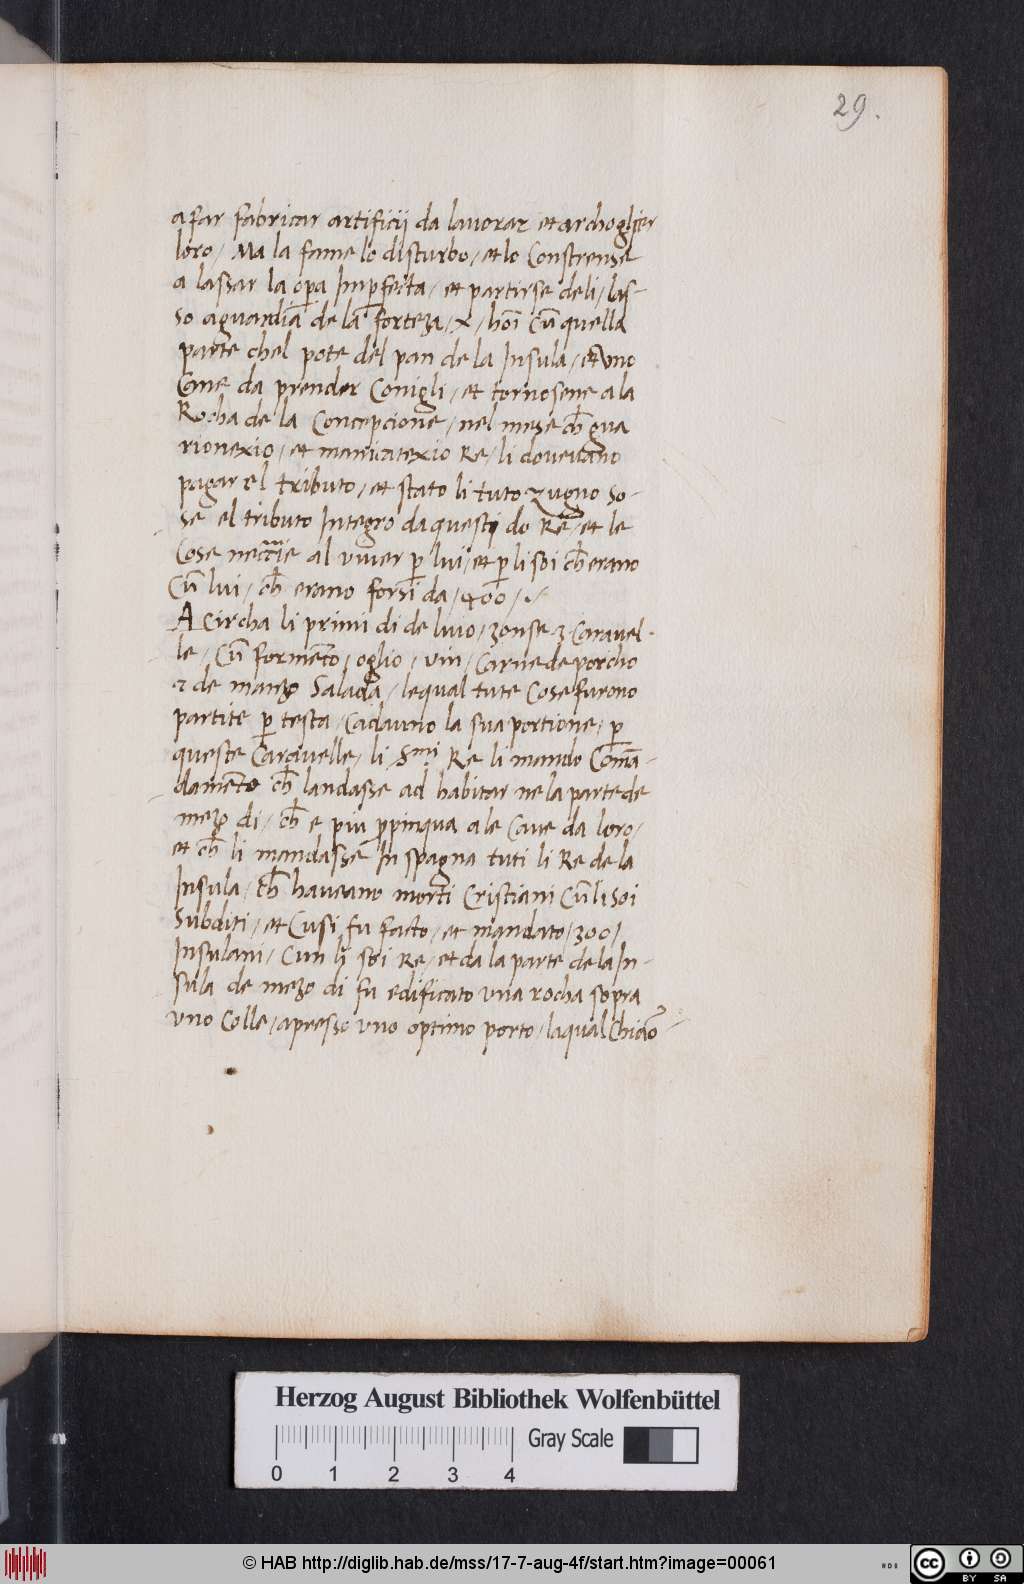 29.
a far fabricar artificij da lauorar et archoglier
loro / Ma la fame lo disturbo / et lo Constrense
a lassar la op̲a Imp̲fecta / et partirse deli / las-
so aguardia de la forteza / X / hoı̄ Cū quella
parte chel pote del pan de la Insula / et uno
Cane da prender Conigli / et tornosene ala
Rocha de la Concepcione / nel mese ch̄ gua
rionexio / et manicatexio Re / li doueuano
pagar el tributo / et stato li tuto zugno so-
se el tributo Integro da questi do Re / et le
Cose neccīe al viuer p̲ lui / et p̲ li soi ch̄ erano
Cū lui / ch̄ erano forsi da / 400 /
A Circha li primi di de luio / zonse 3 Carauel-
le / Cū formēto / oglio / vin / Carne de porcho
et de manzo Salada / lequal tute Cose furono
partite p̲ testa / Cadauno la sua portione / p̲
queste Carauelle / li Smi Re li mando Comā-
damēto ch̄ landasse ad habitar ne la parte de
mezo di / ch̄ e piu p̲pinqua a le Caue da loro /
et ch̄ li mandasse In spagna tuti li Re de la
Insula / ch̄ haueano morti Cristiani Cū li Soi
Subditi / et Cusi fu facto / et mandato / 300 /
Insulani / Cun li soi Re / et da la parte de la In-
sula de mezo di fu edificato vna rocha sopra
vno Colle / apresso vno optimo porto / laqual Chiāo
Herzog August Bibliothek Wolfenbüttel
Gray Scale
0 1 2 3 4
© HAB http://diglib.hab.de/mss/17-7-aug-4f/start.htm?image=00061
cc BY SA